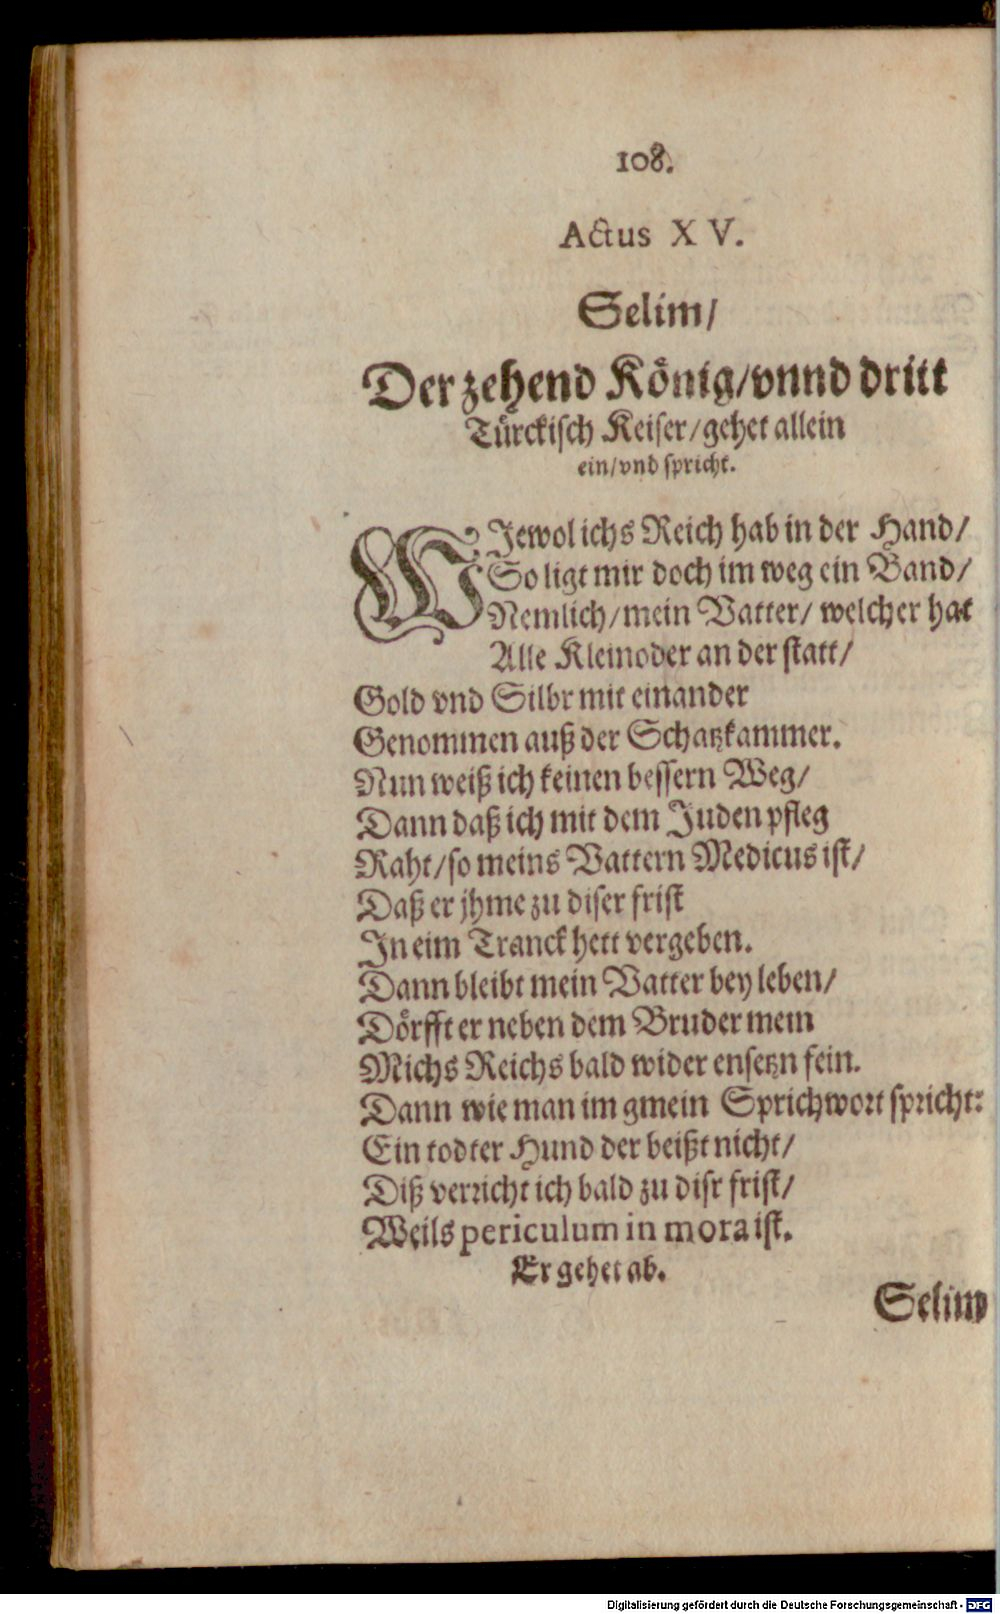 108.
Actus XV.
Selim/
Der zehend König/vnnd dritt
Türckisch Keiser/gehet allein
ein/vnd spricht.
WJewol ichs Reich hab in der Hand/
So ligt mir doch im weg ein Band/
Nemlich/mein Vatter/ welcher hat
Alle Kleinoder an der statt/
Gold vnd Silbr mit einander
Genommen auß der Schatzkammer.
Nun weiß ich keinen bessern Weg/
Dann daß ich mit dem Juden pfleg
Raht/so meins Vattern Medicus ist/
Daß er jhme zu diser frist
In eim Tranck hett vergeben.
Dann bleibt mein Vatter bey leben/
Dörfft er neben dem Bruder mein
Michs Reichs bald wider ensetzn fein.
Dann wie man im gmein Sprichwort spricht:
Ein todter Hund der beißt nicht/
Diß verricht ich bald zu disr frist/
Weils periculum in mora ist.
Er gehet ab.
Selim
Digitalisierung gefördert durch die Deutsche Forschungsgemeinschaft - DFG